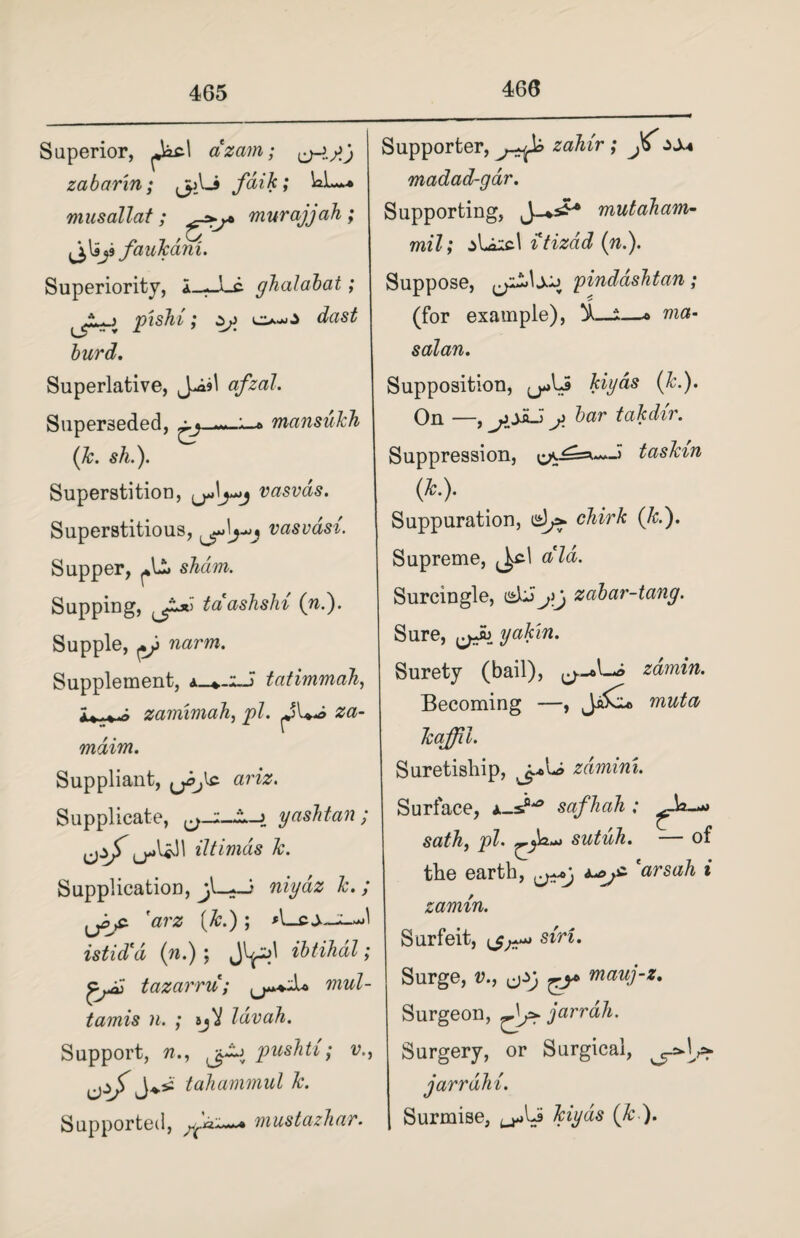 465
466
Superior, اعظم a'zam; زبرین
zabarīn; فائق fáik; مسلط
musallat; مرجح murajjah;
فوقانی faukání.
Superiority, غلبة ghalabat;
پیشی píshí; دست برد dast
burd.
Superlative, افضل afzal.
Superseded, منسوخ mansúkh
(k. sh.).
Superstition, وسواس vasvás.
Superstitious, وسواسی vasvásí.
Supper, شام shám.
Supping, تعشی ta'ashshí (n.).
Supple, نرم narm.
Supplement, تتمه tatimmah,
ضمیمة zamímah, pl. ضمائم za-
máim.
Suppliant, عارض ariz.
Supplicate, یشتن yashtan;
التماس کردن iltimás k.
Supplication, نیاز niyáz k.;
عرض 'arz (k.); استدعاء
istid'á (n.); ابتهال ibtihál;
تضرع tazarru'; ملتمس mul-
tamis n.; لاوه lávah.
Support, n., پشتی pushtí; v.,
تحمل کردن tahammul k.
Supported, مستظهر mustazhar.
Supporter, ظهیر zahír; مدد کار
madad-gár.
Supporting, متحمل mutaham-
mil; اعتضاد i'tizád (n.).
Suppose, پنداشتن pindáshtan;
(for example), مثلا ma-
salan.
Supposition, قیاس kiyás (k.).
On —, بر تقدیر bar takdír.
Suppression, تسکین taskín
(k.).
Suppuration, چرك chirk (k.).
Supreme, اعلی a'lá.
Surcingle, زبر تنك zabar-tang.
Sure, یقین yakín.
Surety (bail), ضامن zámin.
Becoming —, متکفل muta
kaffil.
Suretiship, ضامنی zámini.
Surface, صفحه safhah; سطح
sath, pl. سطوح sutúh. — of
the earth, عرصه زمین 'arsah i
zamín.
Surfeit, سیری sírí.
Surge, v., موج زدن mauj-z.
Surgeon, جراح jarráh.
Surgery, or Surgical, جراحی
jarráhí.
Surmise, قیاس kiyás (k.).